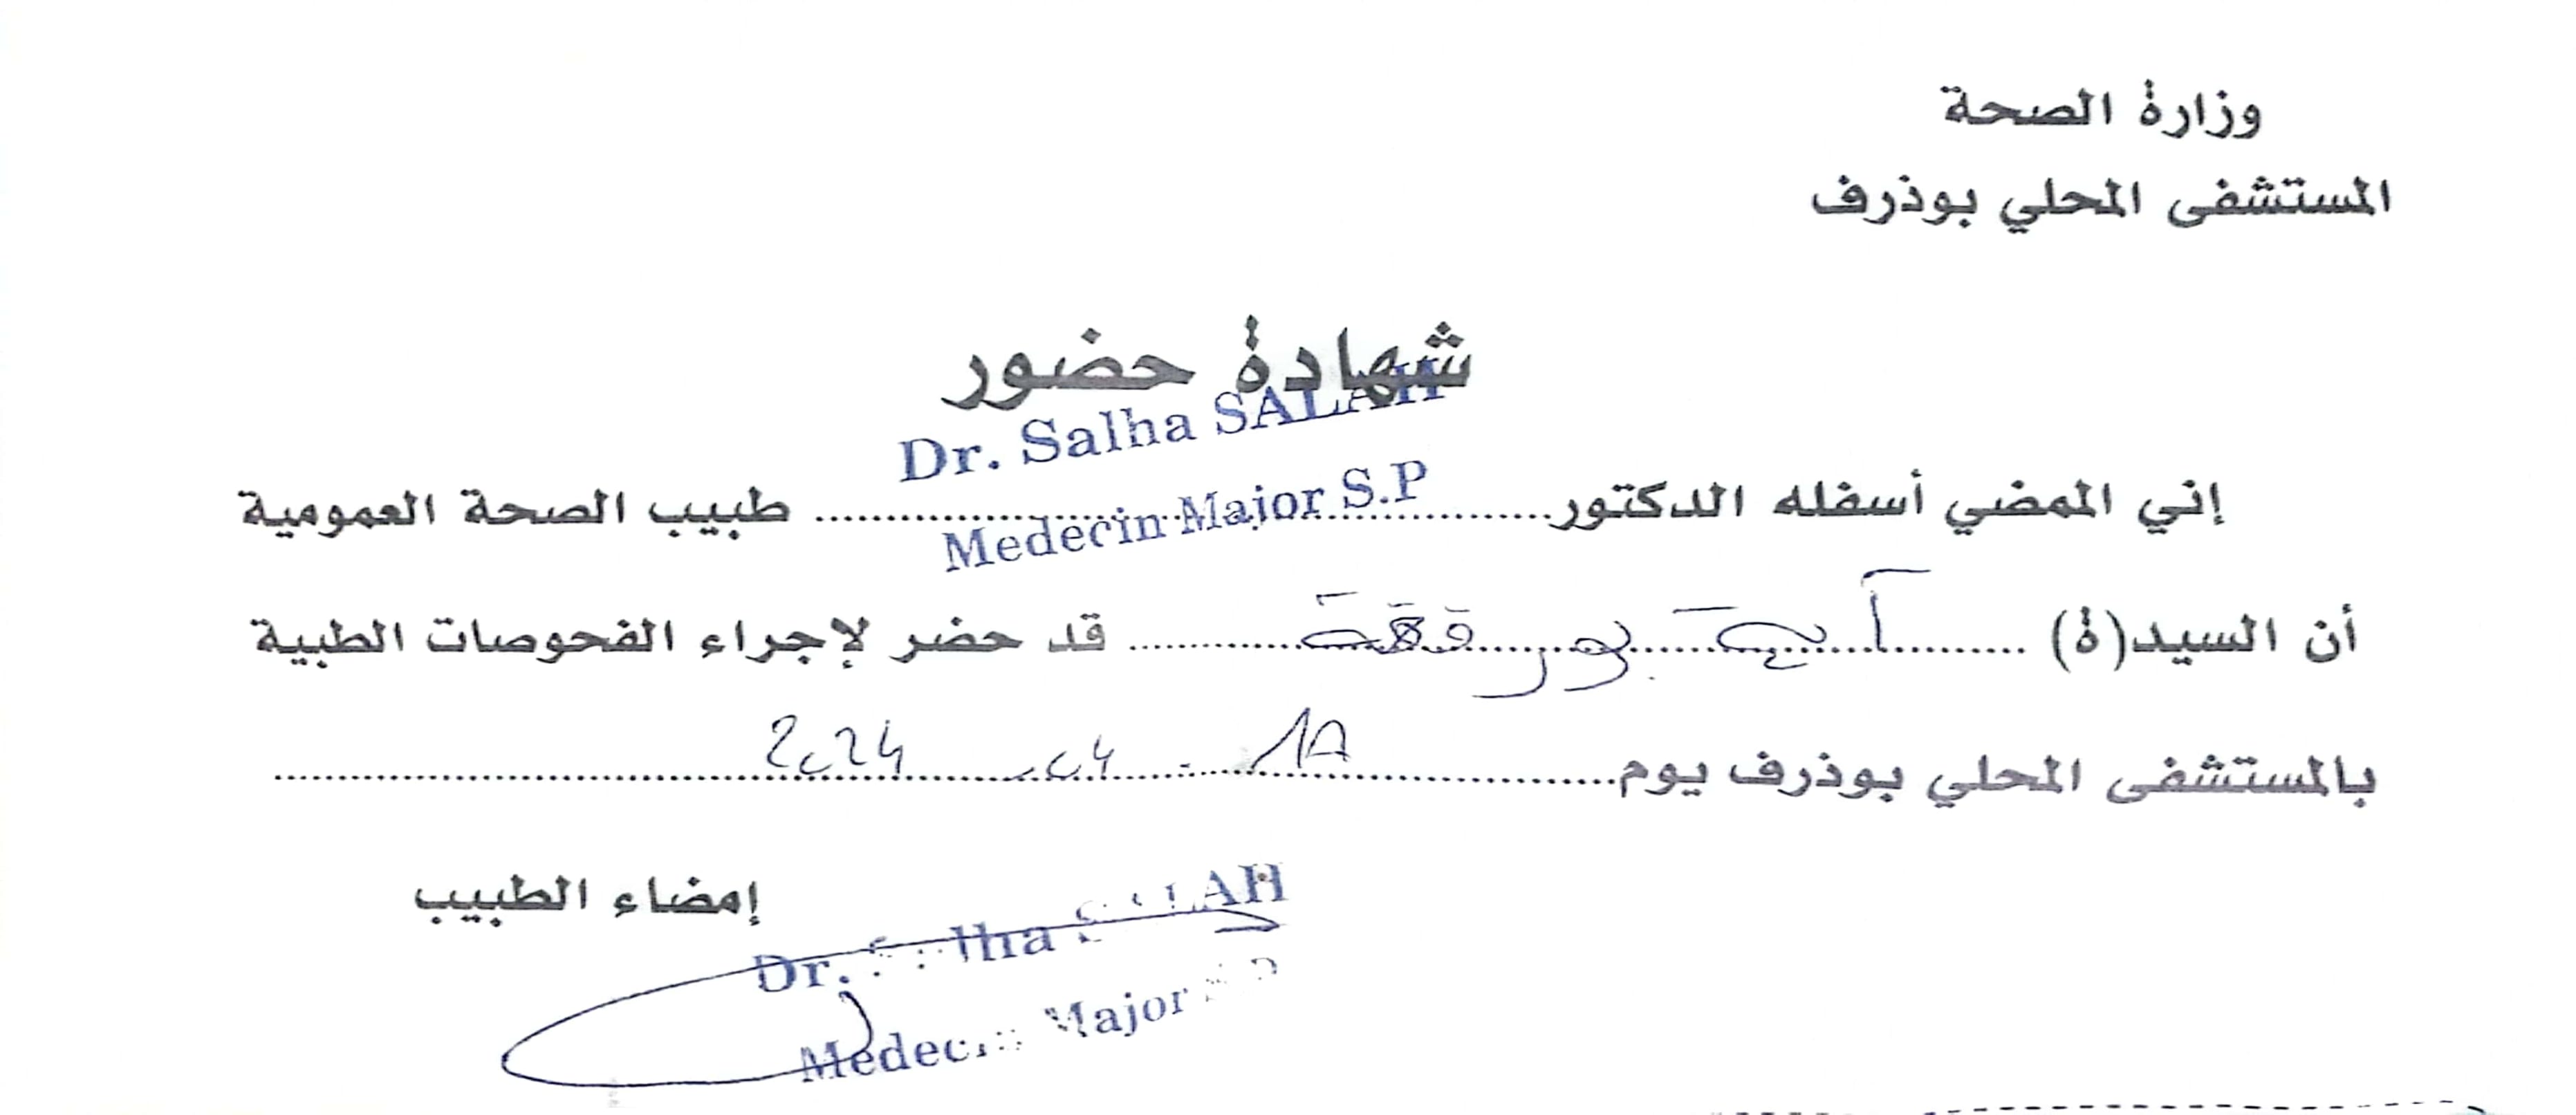 وزارة الصحة
المستشفى المحلي بوذرف
شهادة حضور
Dr. Salha SALAH
Medecin Major S.P
إني الممضي أسفله الدكتور طبيب الصحة العمومية
أن السيد(ة) قد حضر لإجراء الفحوصات الطبية
بالمستشفى المحلي بوذرف يوم
إمضاء الطبيب
Dr. Salha SALAH
Medecin Major S.P